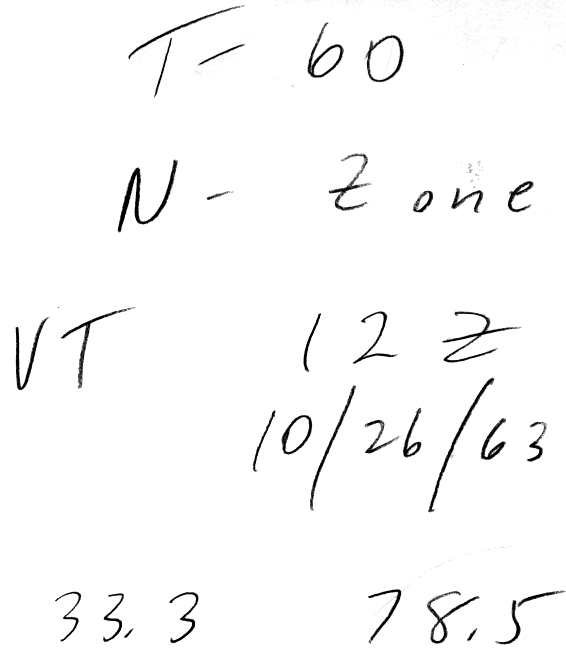 T- 60
N- Zone
VT 12Z
10/26/63
33.3 78.5